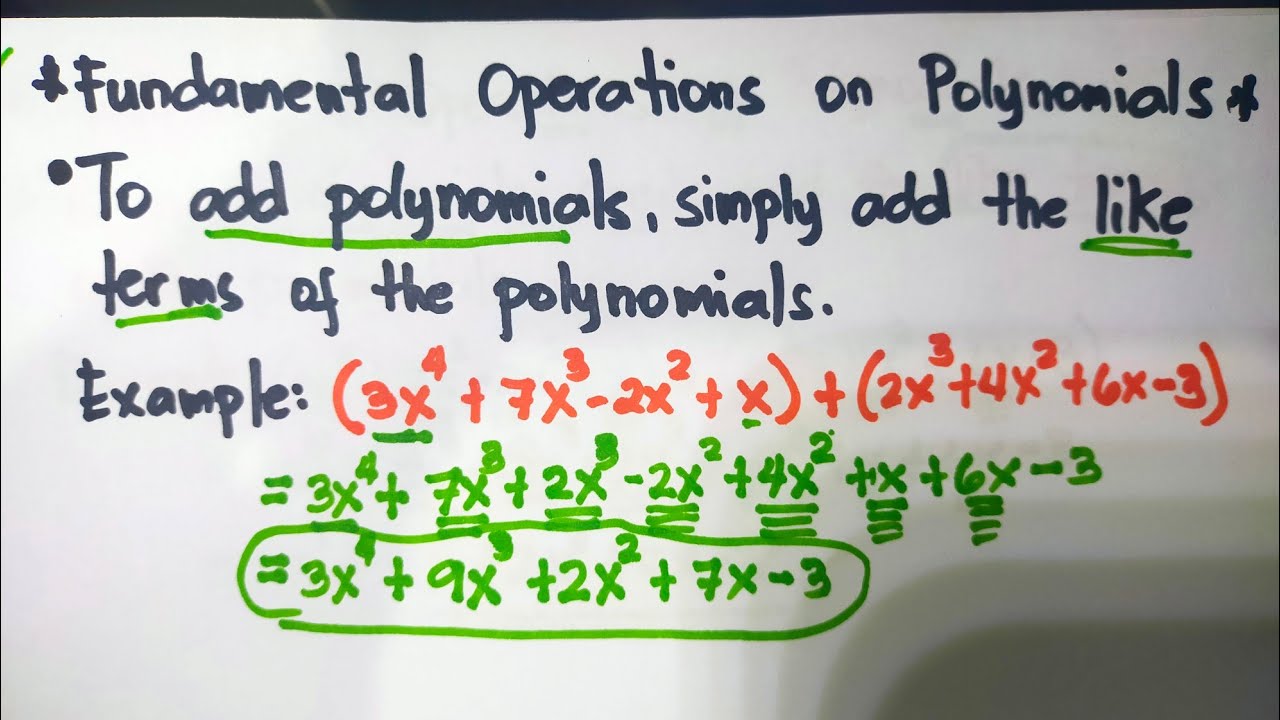 *Fundamental Operations on Polynomials*
•To add polynomials, simply add the like
terms of the polynomials.
Example: (3x⁴ + 7x³ - 2x² + x) + (2x³ + 4x² + 6x - 3)
= 3x⁴ + 7x³ + 2x³ - 2x² + 4x² + x + 6x - 3
= 3x⁴ + 9x³ + 2x² + 7x - 3